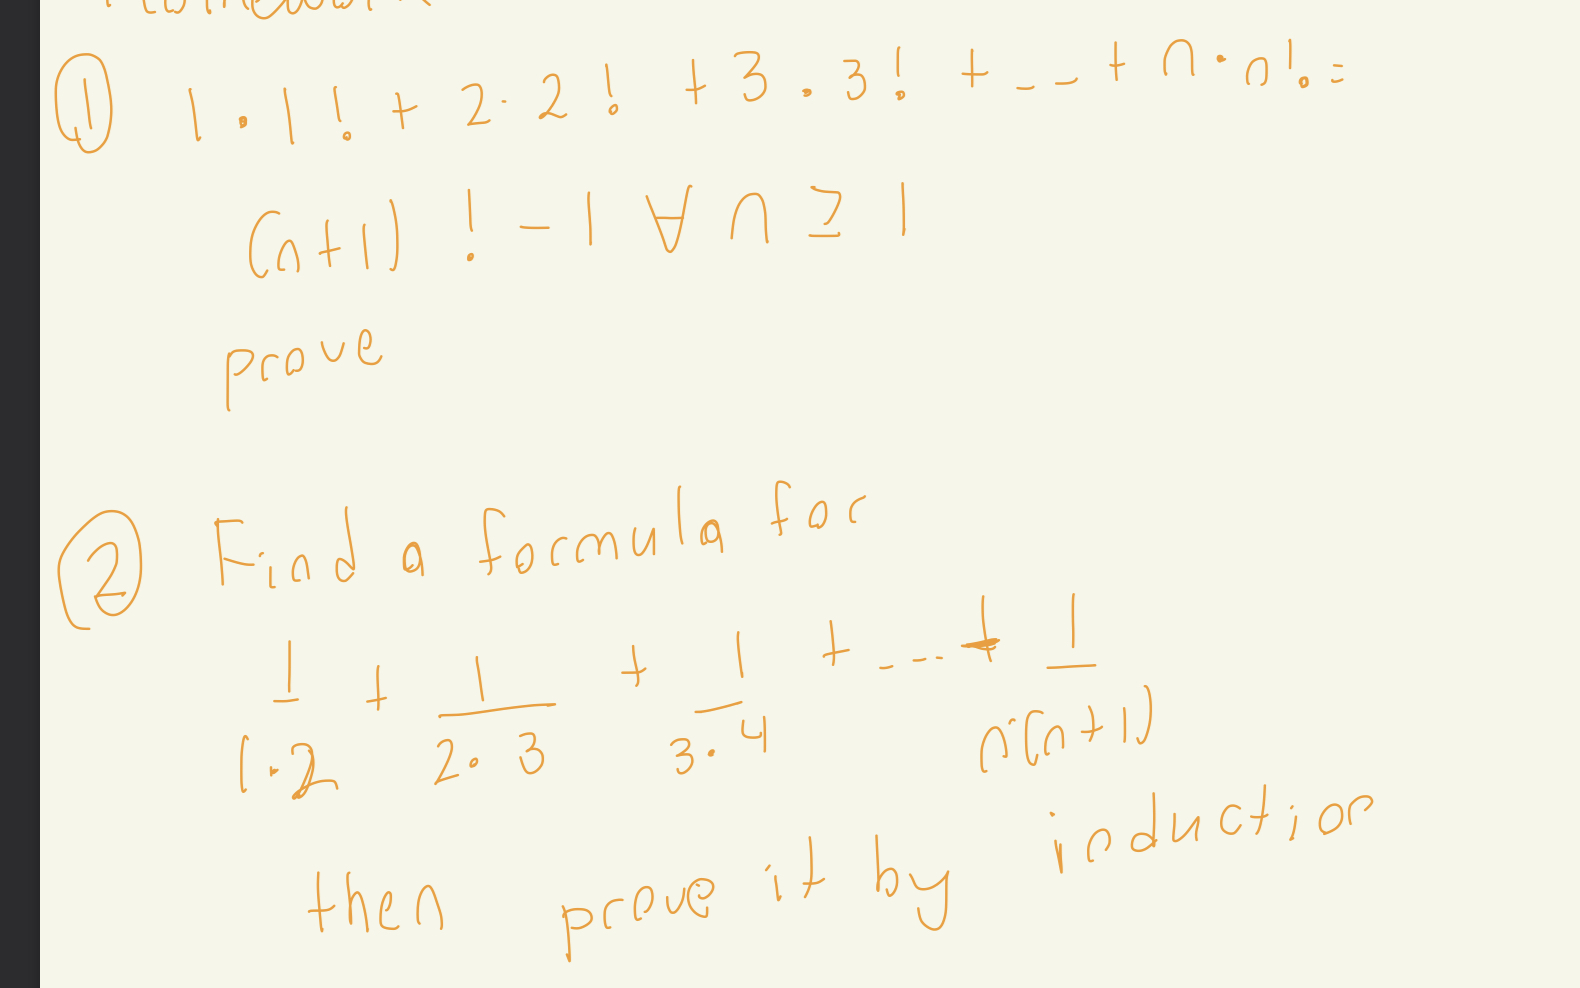 Homework
① 1 · 1! + 2 · 2! + 3 · 3! + ... + n · n! =
(n+1)! - 1 ∀ n ≥ 1
prove
② Find a formula for
1/(1·2) + 1/(2·3) + 1/(3·4) + ... + 1/(n·(n+1))
then prove it by induction